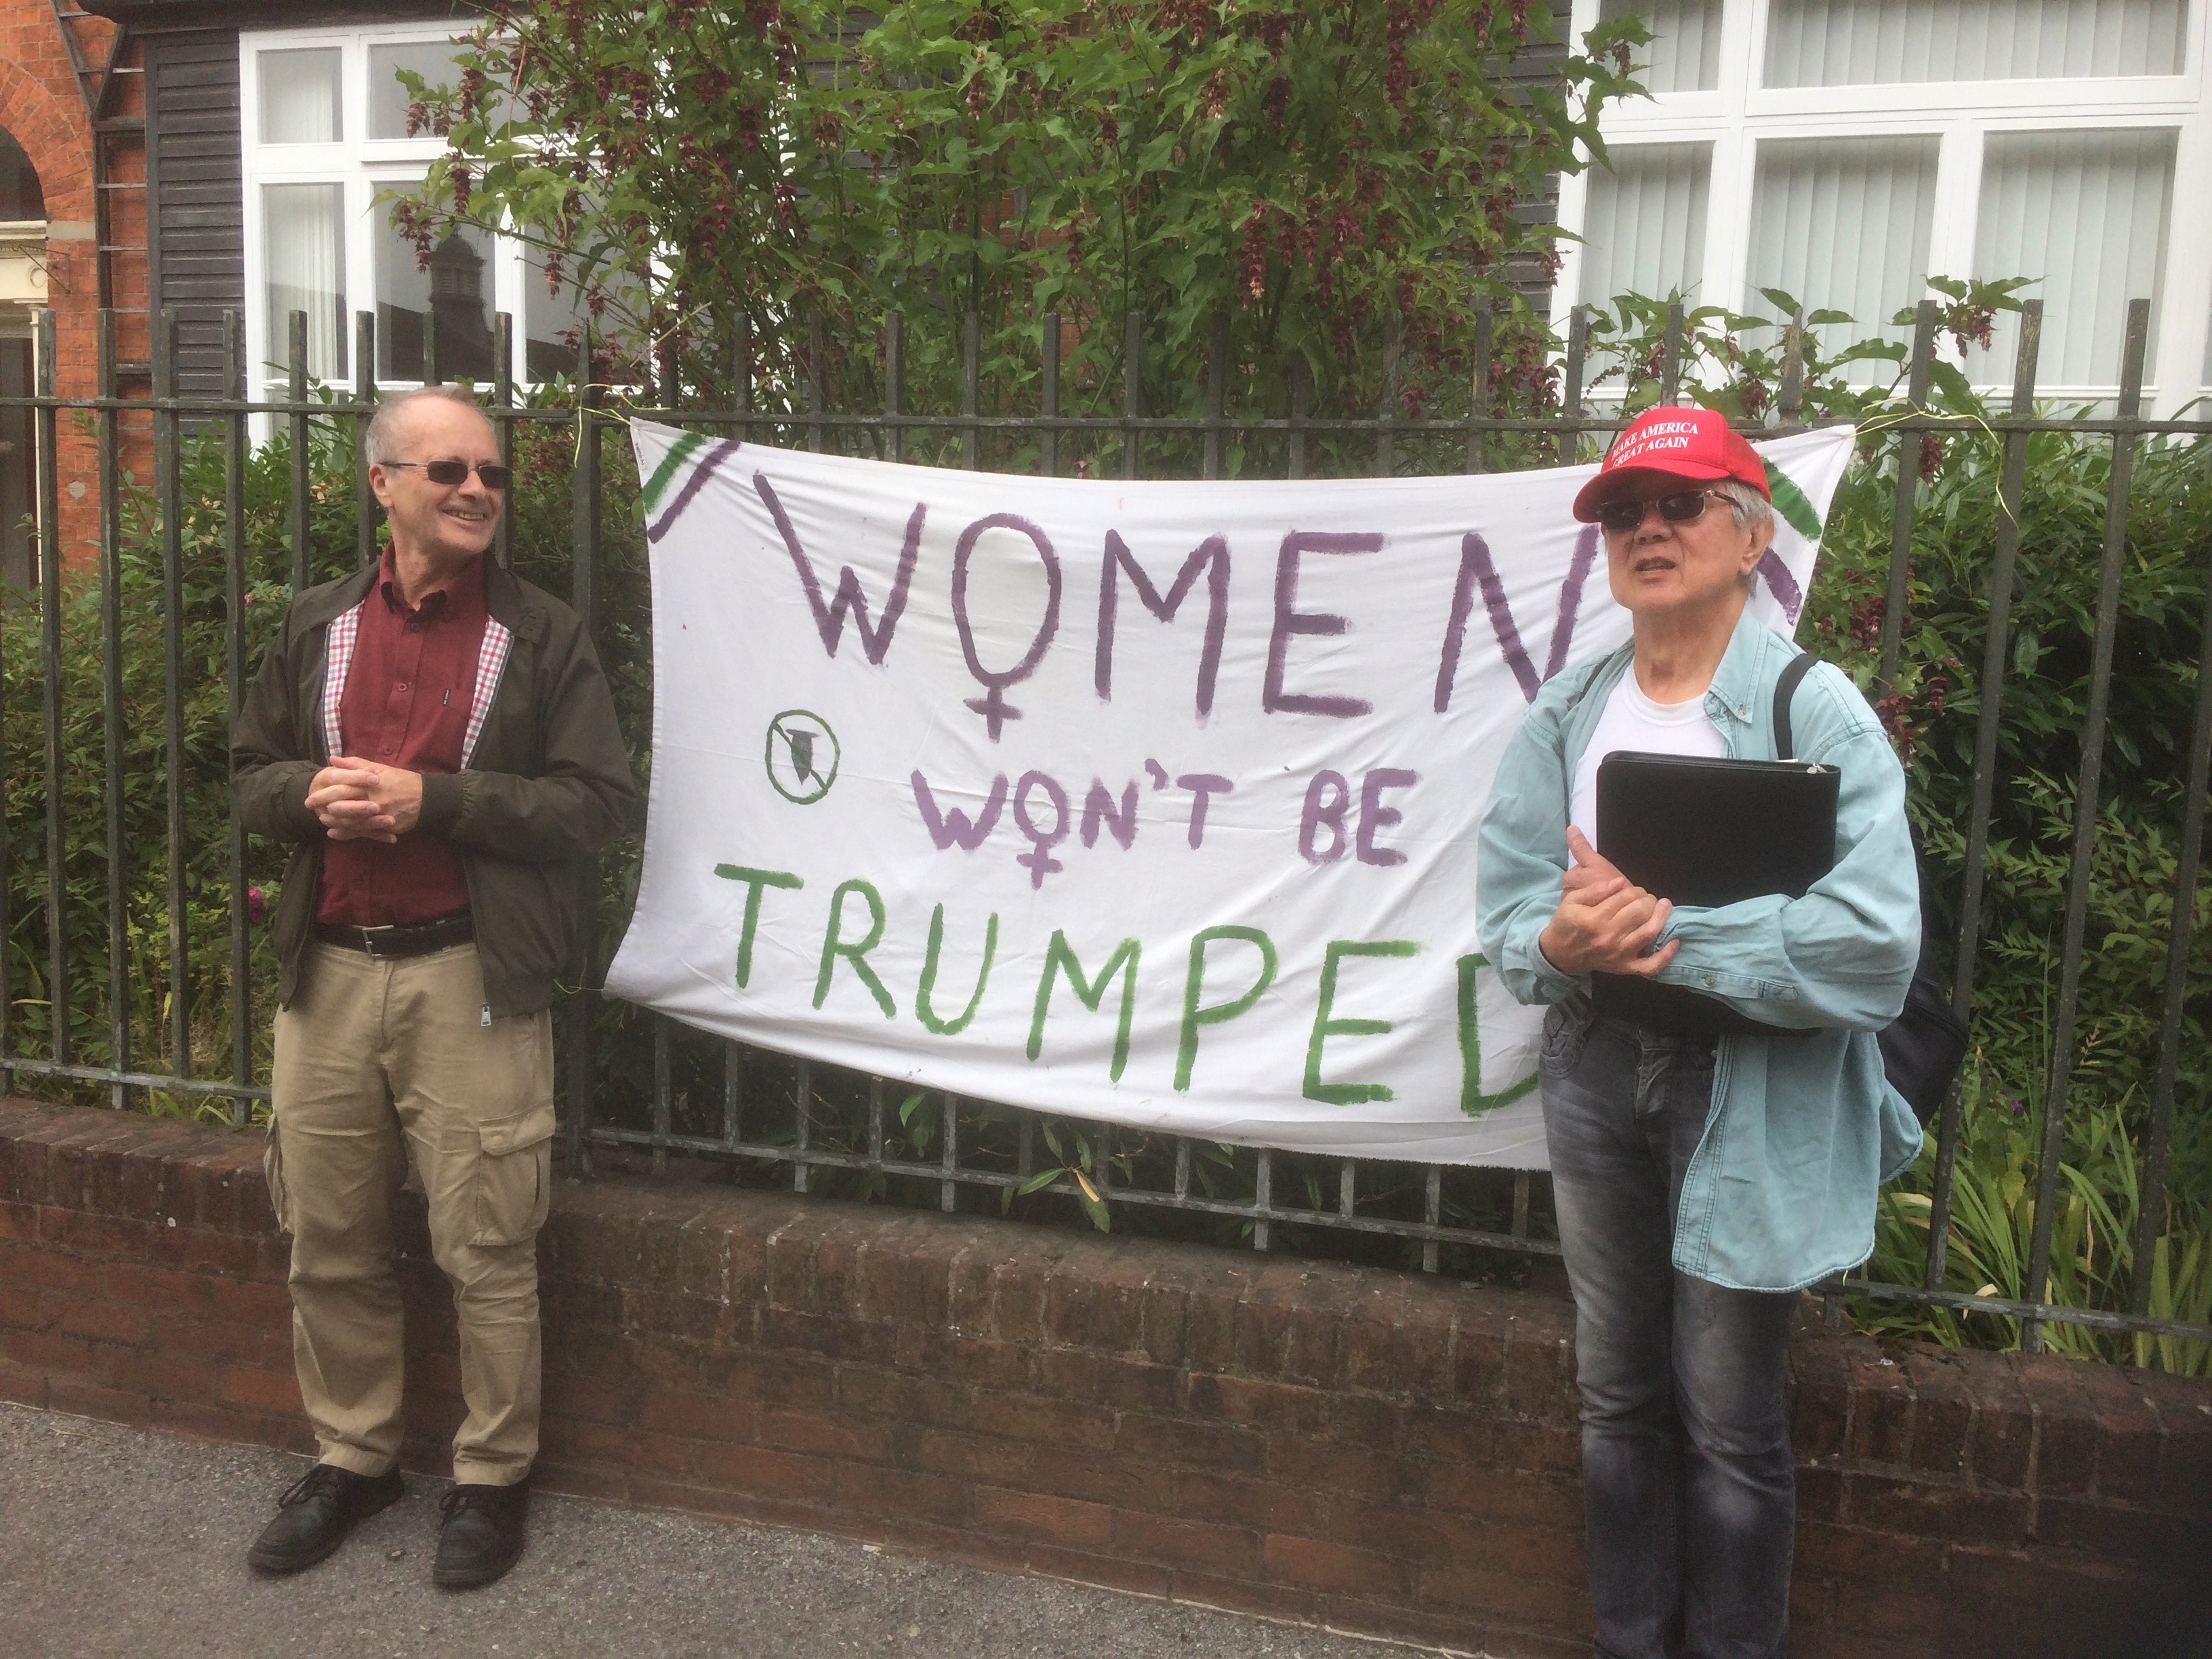 MAKE AMERICA
GREAT AGAIN
WOMEN
WON'T BE
TRUMPED